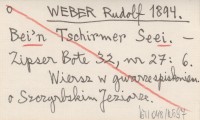 WEBER Rudolf 1894.
Bei'n Tschirmer Seei. –
Zipser Bote 32, nr 27: 6.
Wiersz w gwarze spiskiej
o Szczyrbskim Jeziorze.